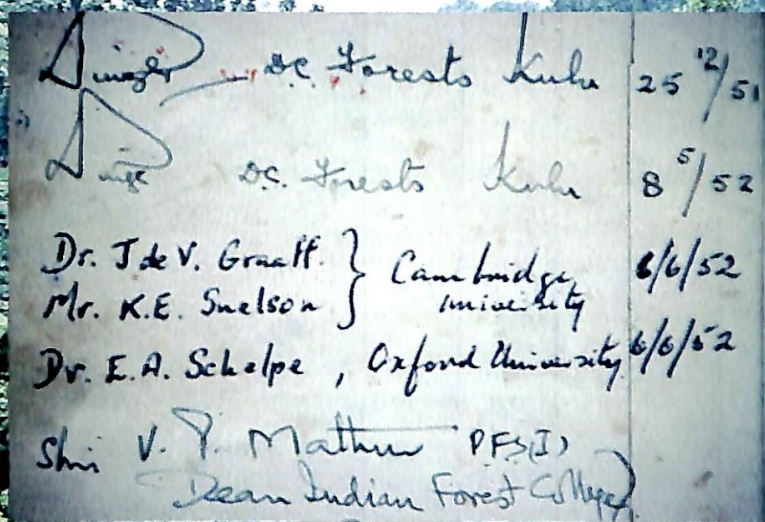 D.C. Forests Kulu 25 12/51
D.C. Forests Kulu 8 5/52
Dr. J de V. Graaff. } Cambridge 6/6/52
Mr. K.E. Snelson } University
Dr. E.A. Schelpe, Oxford University 6/6/52
Shri V. P. Mathur PFS(I)
Dean Indian Forest College